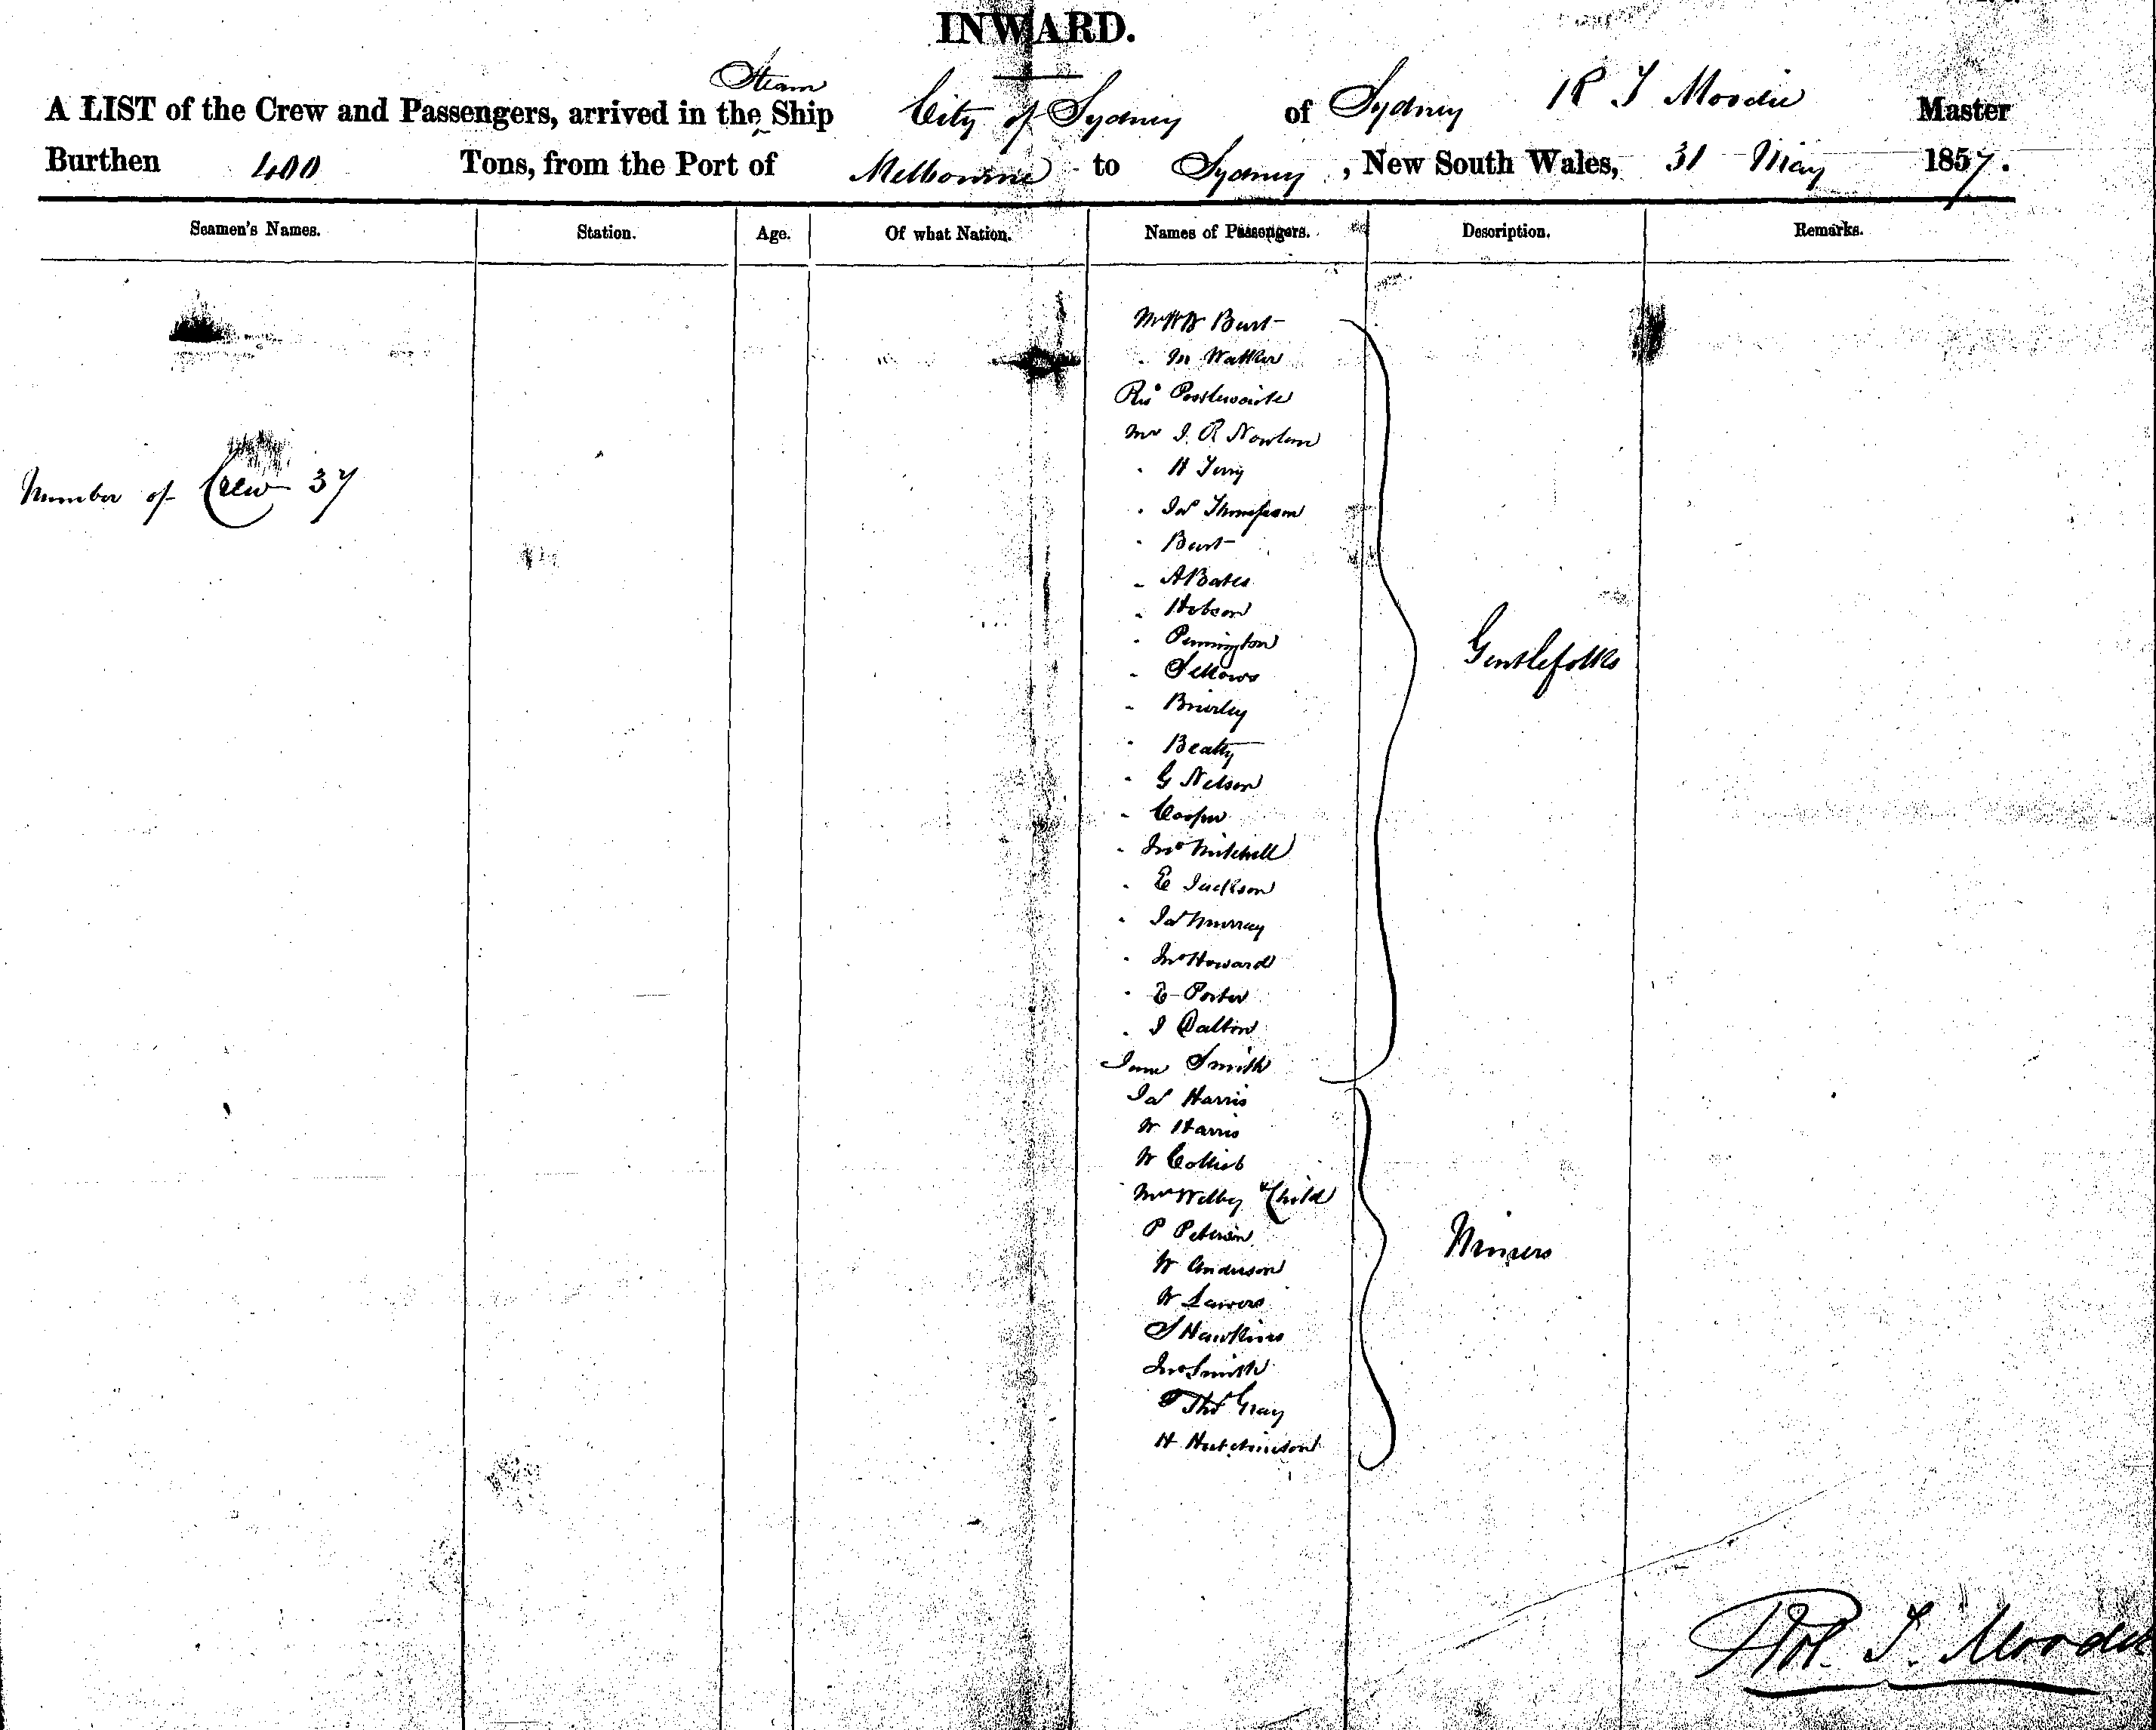 INWARD.
Steam
A LIST of the Crew and Passengers, arrived in the Ship City of Sydney of Sydney R T Moodie Master
Burthen 400 Tons, from the Port of Melbourne to Sydney, New South Wales, 31 May 1857.
Seamen's Names. Station. Age. Of what Nation. Names of Passengers. Description. Remarks.
Burt
Walker
Postlewaite
Mr J. R Nowlan
" H Terry
" Jas Thompson
" Burt
" A Bates
" Hobson
" Pennington
" Fellows
Gentlefolks
" Brierley
" Beatty
" G Nelson
" Cooper
" Jno Mitchell
" E Jackson
" Jas Murray
" Jno Howard
" E Porter
" J Dalton
Smith
Jas Harris
W Harris
W
& Child
P
Miners
W Anderson
W
S Hawkins
Jno Smith
Thos Gray
H Hutchinson
Number of Crew 37
T. Moodie